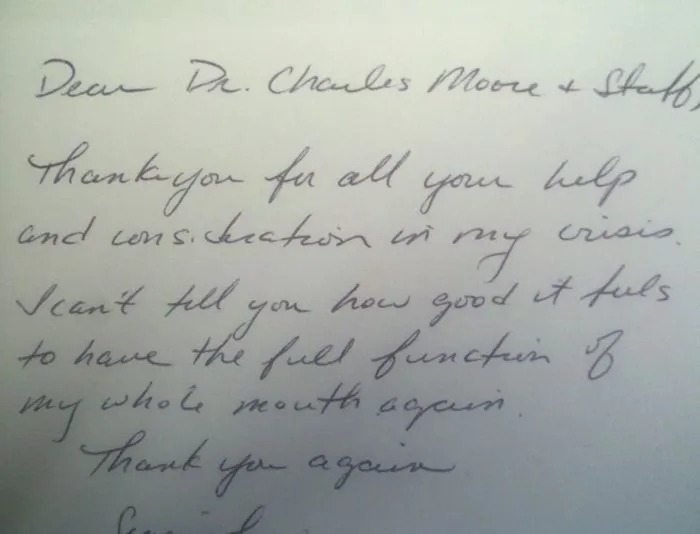 Dear Dr. Charles Moore + Staff,
Thank you for all your help
and consideration in my crisis.
I can't tell you how good it feels
to have the full function of
my whole mouth again.
Thank you again